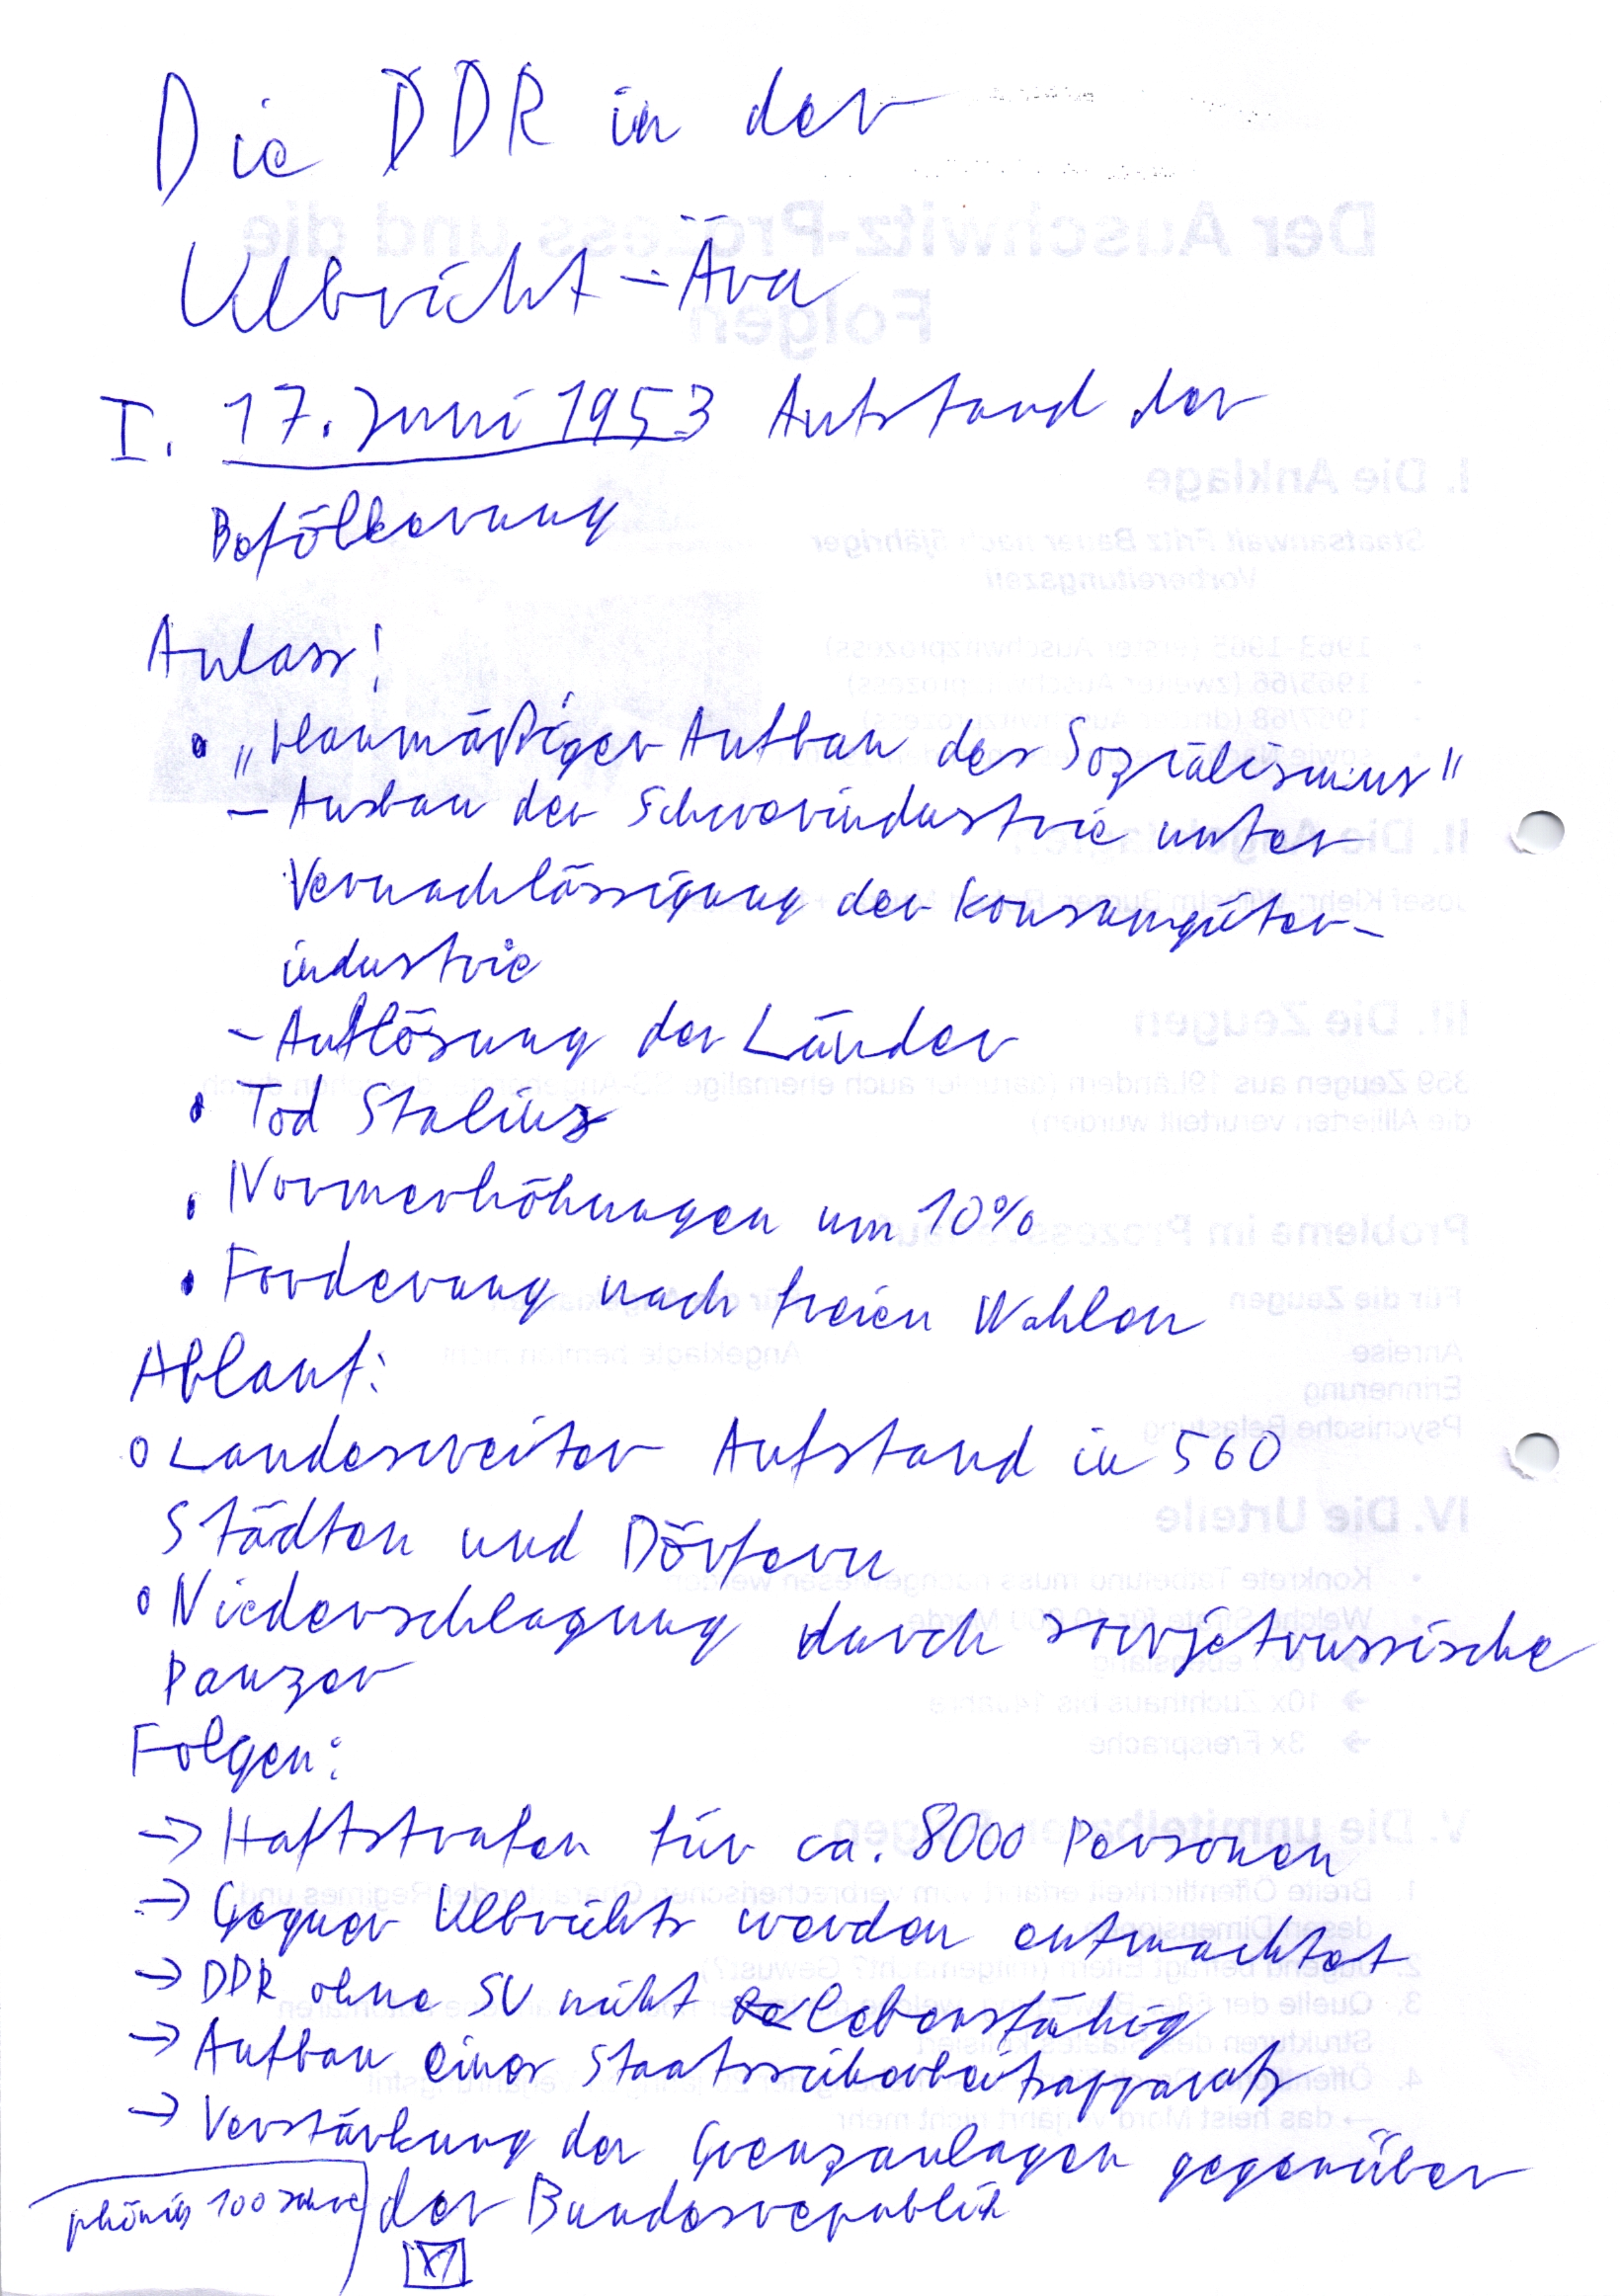 Die DDR in der
Ulbricht-Ära
I. 17. Juni 1953 Aufstand der
Befölkerung
Anlass:
• „planmäßiger Aufbau des Sozialismus"
- Ausbau der Schwerindustrie unter
Vernachlässigung der Konsumgüter-
industrie
- Auflösung der Länder
• Tod Stalins
• Normerhöhungen um 10%
• Forderung nach freien Wahlen
Ablauf:
o Landesweiter Aufstand in 560
Städten und Dörfern
o Niederschlagung durch sowjetrussische
Panzer
Folgen:
→ Haftstrafen für ca. 8000 Personen
→ Gegner Ulbrichts werden entmachtet
→ DDR ohne SU nicht lebensfähig
→ Aufbau eines Staatssicherheitsapparats
→ Verstärkung der Grenzanlagen gegenüber
der Bundesrepublik
phönix 100 Jahre